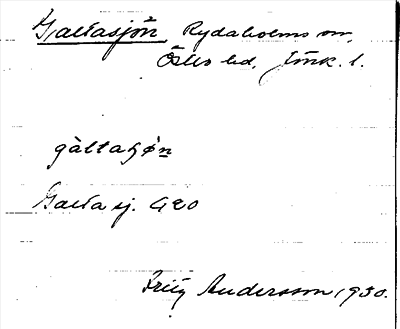 Galtasjön Rydaholms sn,
Östbo hd, Jönk. l.
gàltaʃø̀n
Galtasj. GEO
Fritz Andersson 1930.